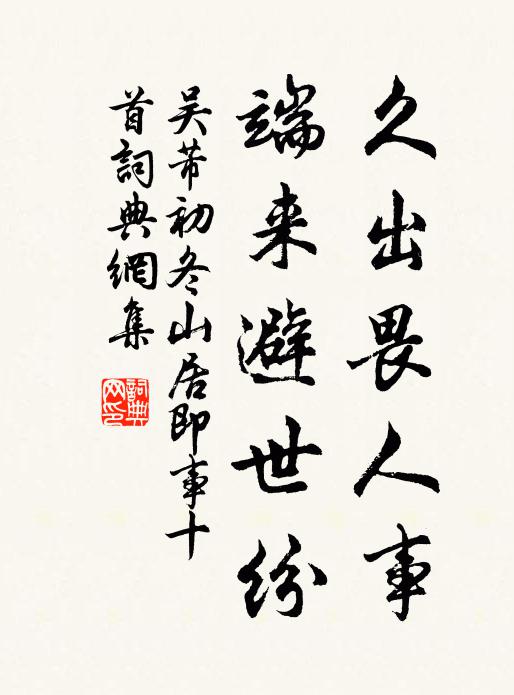 久出畏人事
端来避世紛
吴芾初冬山居即事十
首詞典網集
詞典
网印